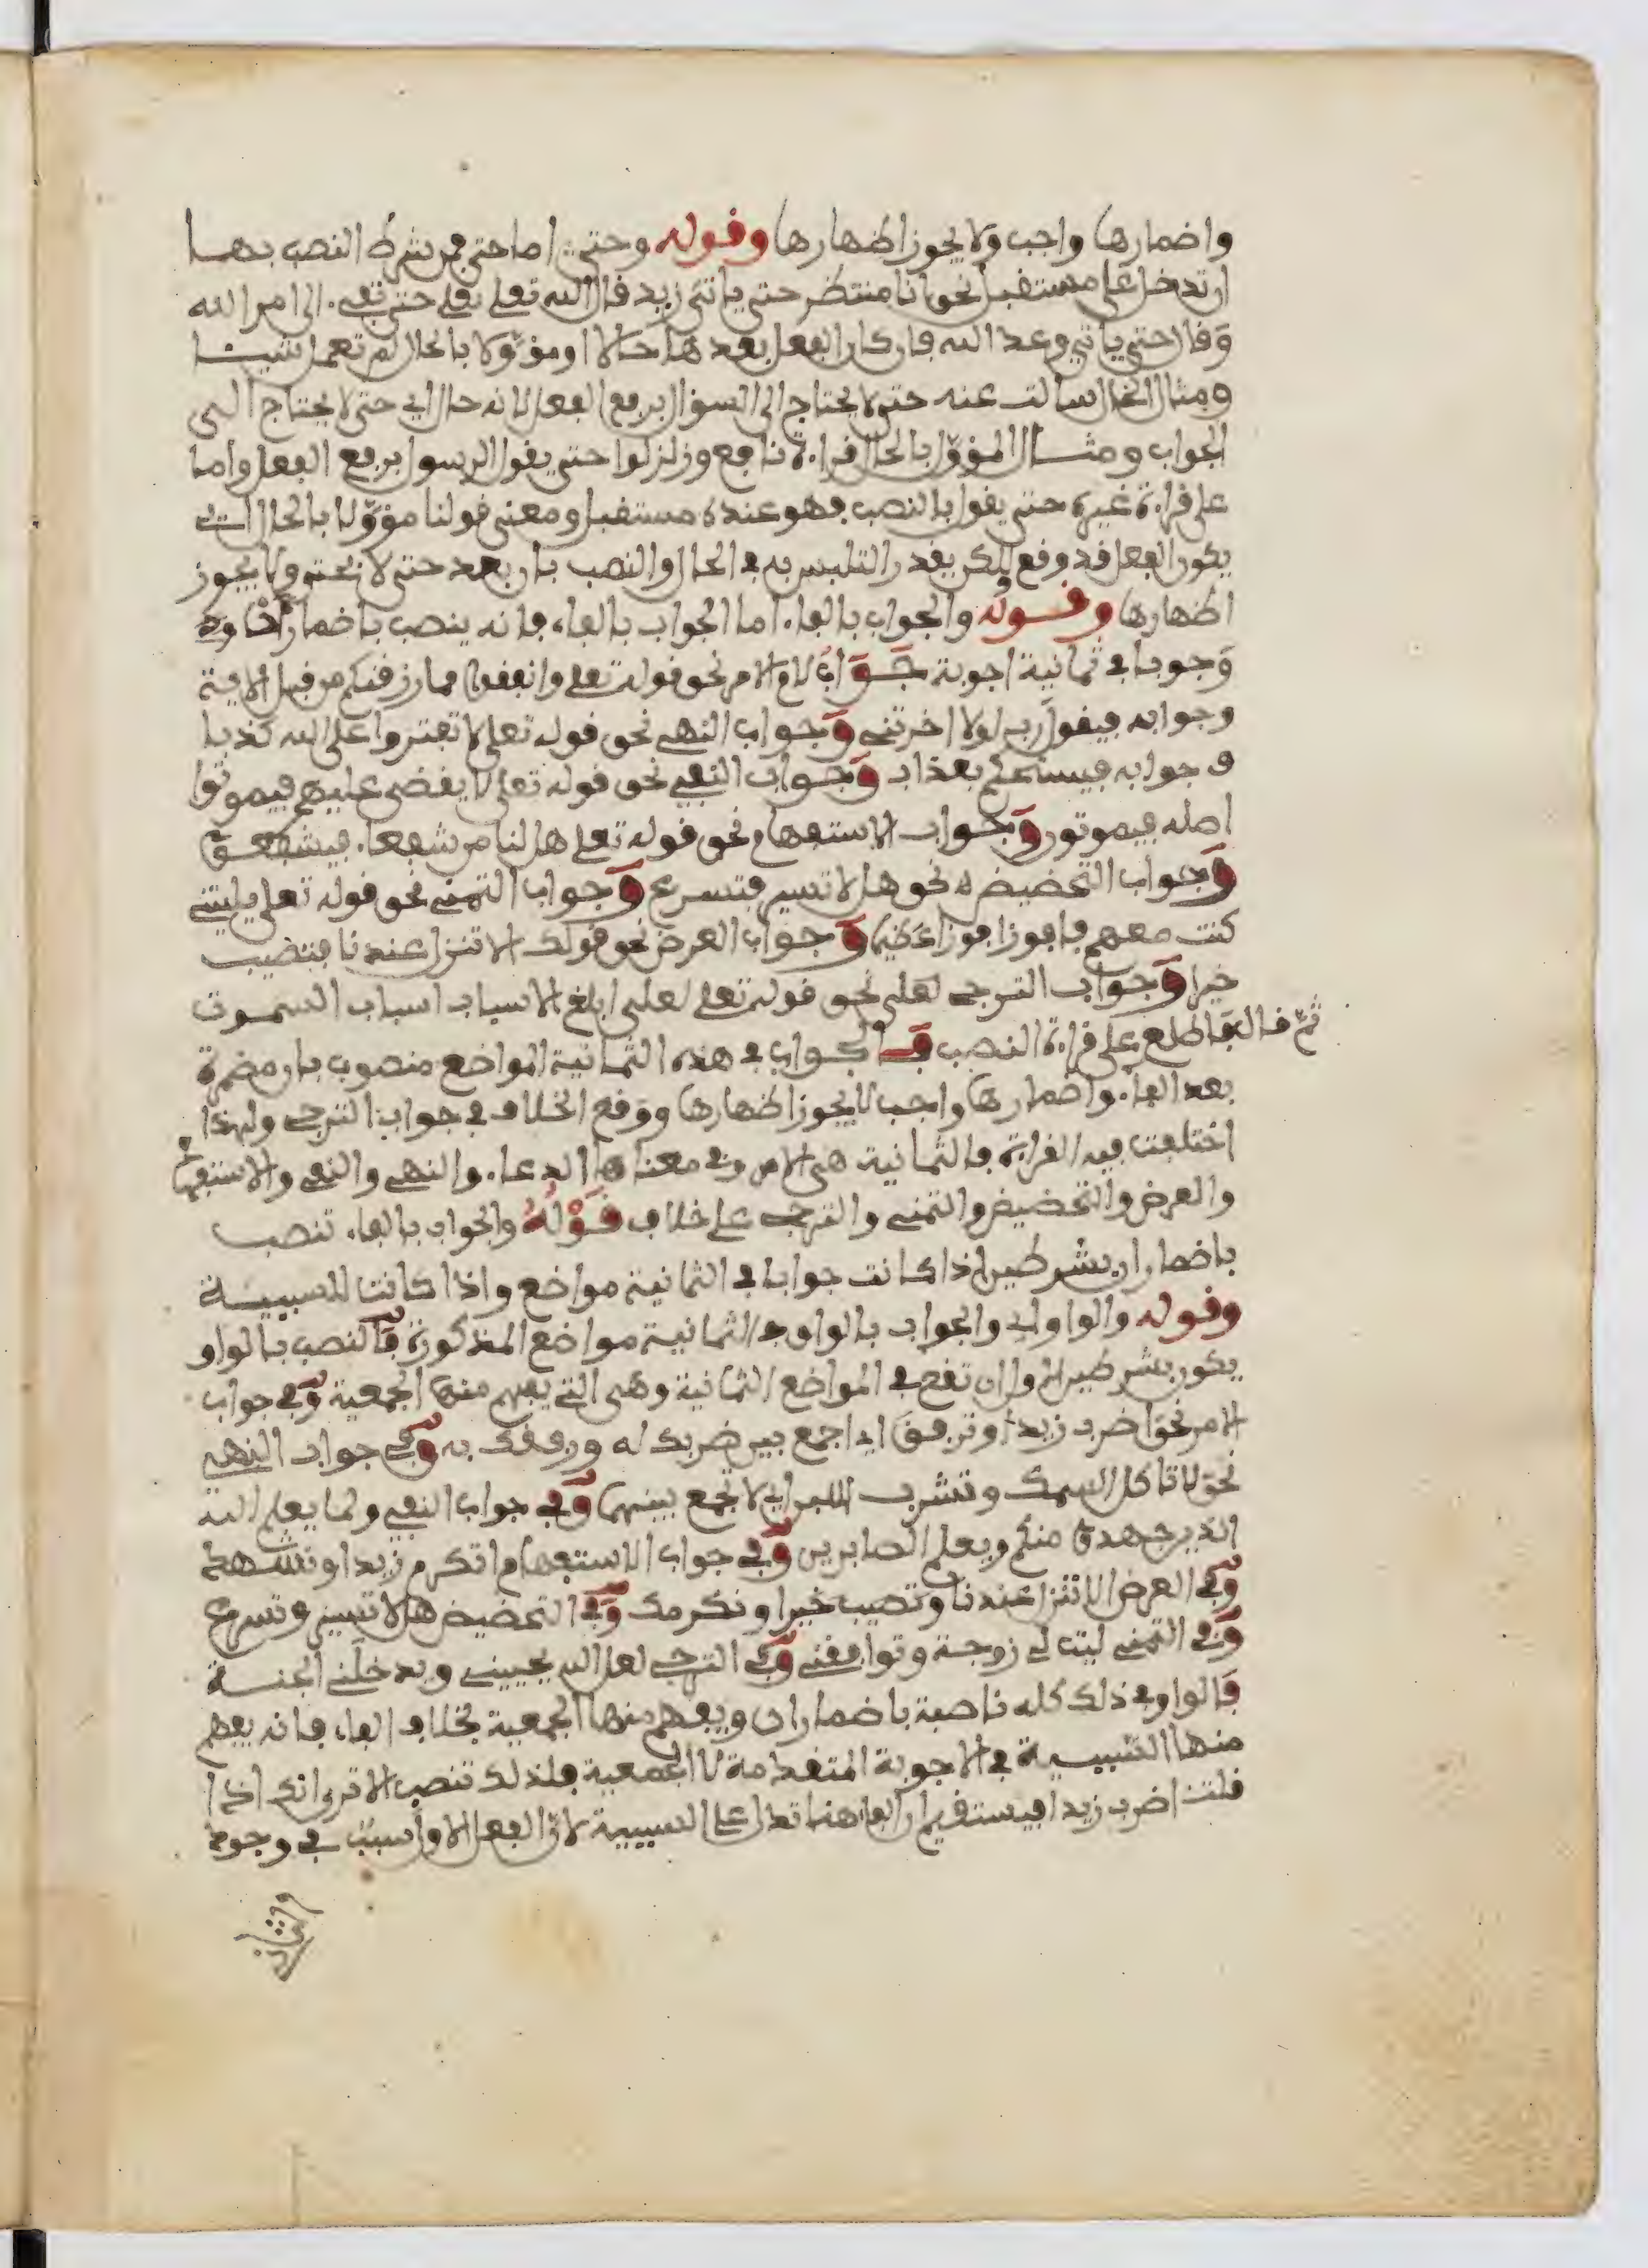 واضمارها واجب ولا يجوز اظهارها وقوله وحتى اما حتى فمن شرط النصب بها
ان تدخل على مستقبل نحو انا منتظر حتى ياتي زيد قال الله تعلى حتى تفيء الى امر الله
وقال حتى ياتي وعد الله فان كان الفعل بعدها حالا او مؤولا بالحال لم تعمل شيئا
ومثال الحال سالت عنه حتى لا يحتاج الى السوال برفع الفعل لانه حال اي حتى لا يحتاج الى
الجواب ومثال المؤول بالحال قراءة نافع وزلزلوا حتى يقول الرسول برفع الفعل واما
على قراءة غيره حتى يقول بالنصب فهو عنده مستقبل ومعنى قولنا مؤولا بالحال ان
يكون الفعل قد وقع لكن يقدر التلبس به في الحال والنصب بان بعد حتى لا بحتى ولا يجوز
اظهارها وقوله والجواب بالفاء اما الجواب بالفاء فانه ينصب باضمار ان
وجوبا في ثمانية اجوبة جواب الامر نحو قوله تعلى وانفقوا مما رزقنكم من قبل الاية
وجوابه فيقول رب لولا اخرتني وجواب النهي نحو قوله تعلى لا تفتروا على الله كذبا
وجوابه فيسحتكم بعذاب وجواب النفي نحو قوله تعلى لا يقضى عليهم فيموتوا
اصله فيموتون وجواب الاستفهام نحو قوله تعلى هل لنا من شفعاء فيشفعوا
وجواب التحضيض نحو هلا تسير فتسرع وجواب التمني نحو قوله تعلى يليتني
كنت معهم فافوز فوزا عظيما وجواب العرض نحو قولك الا تنزل عندنا فتصيب
خيرا وجواب الترجي لعلى نحو قوله تعلى لعلى ابلغ الاسباب اسباب السموت
ثم قال فاطلع على قراءة النصب فالجواب في هذه الثمانية المواضع منصوب بان مضمرة
بعد الفاء واضمارها واجب لا يجوز اظهارها ووقع الخلاف في جواب الترجي ولهذا
اختلفت فيه القراءة فالثمانية هي الامر وفي معناها الدعاء والنهي والنفي والاستفهام
والعرض والتحضيض والتمني والترجي على خلاف قوله والجواب بالفاء تنصب
باضمار ان بشرطين اذا كانت جوابا في الثمانية مواضع واذا كانت للسببية
وقوله والواو اي والجواب بالواو في الثمانية مواضع المذكورة فالنصب بالواو
يكون بشرطين الاول ان تقع في المواضع الثمانية وهي التي يفهم منها الجمعية وفي جواب
الامر نحو اضرب زيدا وترفق اي اجمع بين ضربك له ورفقك به وفي جواب النهي
نحو لا تاكل السمك وتشرب اللبن اي لا تجمع بينهما وفي جواب النفي ولما يعلم الله
الذين جهدوا منكم ويعلم الصابرين وفي جواب الاستفهام اتكرم زيدا
وفي العرض الا تنزل عندنا وتصيب خيرا ونكرمك وفي التحضيض هلا تسير وتسرع
وفي التمني ليت لي زوجة وتوافقني وفي الترجي لعل الله يحييني ويدخلني الجنة
فالواو في ذلك كله ناصبة باضمار ان ويفهم منها الجمعية بخلاف الفاء فانه يفهم
منها السببية في الاجوبة المتقدمة لا الجمعية فلذلك تنصب الا ترى انك اذا
قلت اضرب زيدا فيستقيم ان الفاء هنا تدل على السببية لان الفعل الاول سبب في وجود